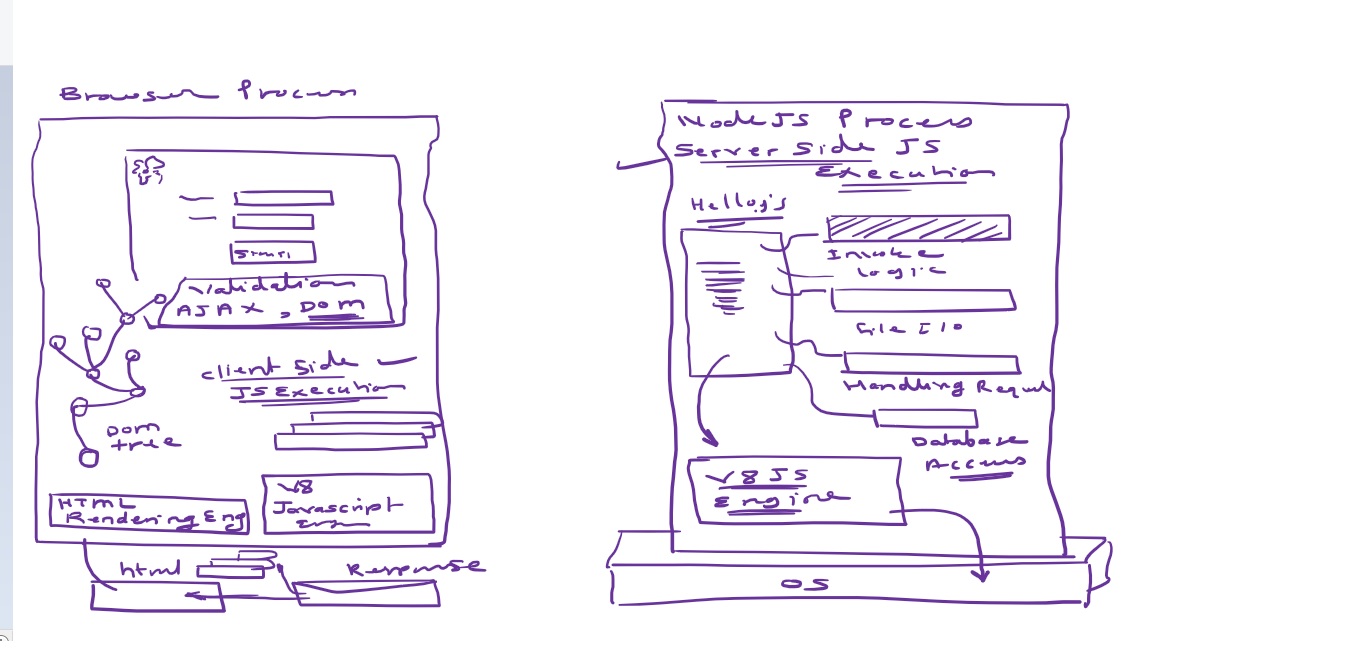 Browser Process
Submit
Validation
AJAX, DOM
Client Side
JS Execution
DOM
tree
HTML
Rendering Eng
V8
Javascript
html
Response
NodeJS Process
Server Side JS
Execution
Hello.js
Invoke
Logic
File I/O
Handling Request
Database
Access
V8 JS
Engine
OS